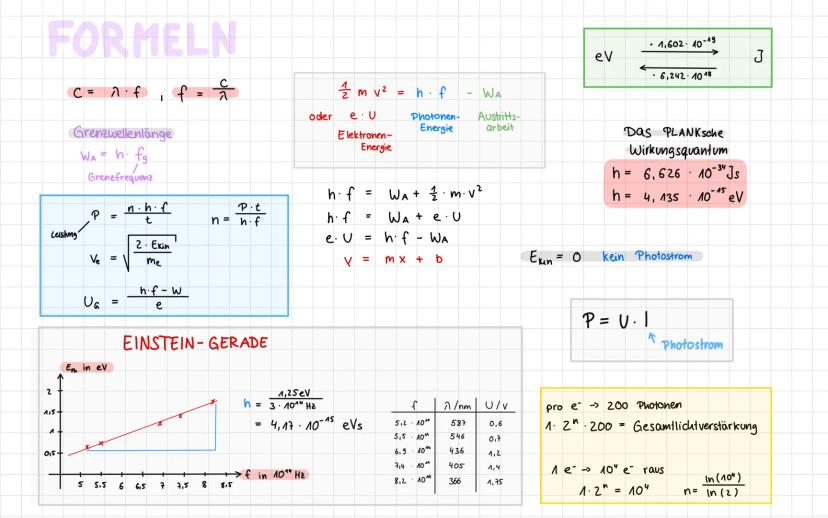 FORMELN
c = λ · f , f = c/λ
Grenzwellenlänge
W_A = h · f_g
Grenzfrequenz
1/2 m v² = h · f - W_A
oder e · U Photonen- Austritts-
Elektronen- Energie arbeit
Energie
eV · 1,602 · 10⁻¹⁹ J
· 6,242 · 10¹⁸
Das PLANKsche
Wirkungsquantum
h = 6,626 · 10⁻³⁴ Js
h = 4,135 · 10⁻¹⁵ eV
P = n · h · f / t n = P · t / h · f
Leistung
V_e = √(2 · E_kin / m_e)
U_G = h · f - W / e
h · f = W_A + 1/2 · m · v²
h · f = W_A + e · U
e · U = h · f - W_A
y = mx + b
E_kin = 0 kein Photostrom
P = U · I
Photostrom
EINSTEIN-GERADE
in eV
2
1,5
1
0,5
5 5,5 6 6,5 7 7,5 8 8,5
f in 10¹⁴ Hz
h = 1,25 eV / 3 · 10¹⁴ Hz
= 4,17 · 10⁻¹⁵ eVs
f λ/nm U/V
5,2 · 10¹⁴ 587 0,6
5,5 · 10¹⁴ 546 0,7
6,9 · 10¹⁴ 436 1,2
7,4 · 10¹⁴ 405 1,4
8,2 · 10¹⁴ 366 1,75
pro e⁻ → 200 Photonen
1 · 2ⁿ · 200 = Gesamtlichtverstärkung
1 e⁻ → 10⁴ e⁻ raus
1 · 2ⁿ = 10⁴ n = ln(10⁴) / ln(2)